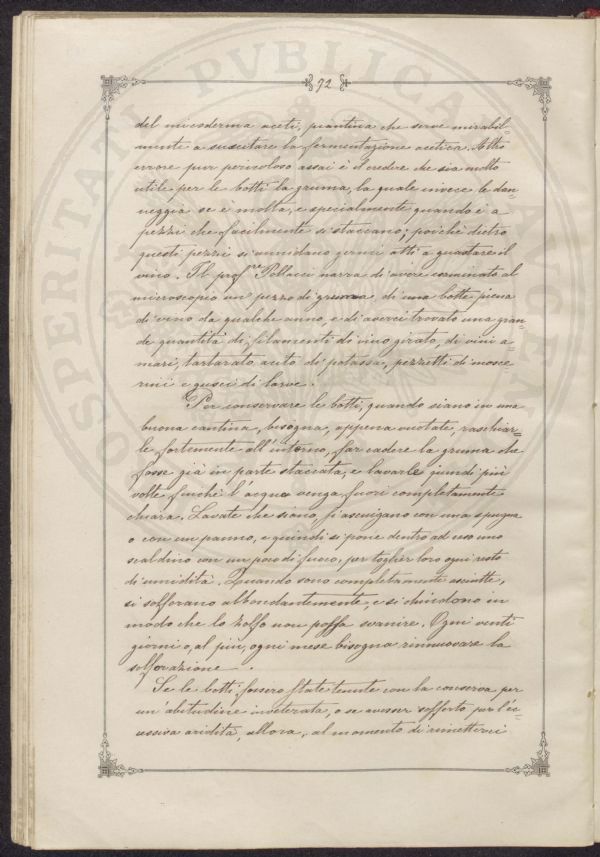 72
del micoderma aceti, piantina che serve mirabil=
mente a suscitare la fermentazione acetica. Altro
errore pur pericoloso assai è il credere che sia molto
utile per le botti la gruma, la quale invece le dan=
neggia se è molta, e specialmente quando è a
pezzi che facilmente si staccano; poichè dietro
questi pezzi si annidano germi atti a guastare il
vino. Il prof.re Pollacci narra di avere esaminato al
microscopio un pezzo di gruma di una botte piena
di vino da qualche anno, e di averci trovato una gran=
de quantità di filamenti di vino girato, di vini a=
mari, tartarato acito di potassa, pezzetti di mosce
rini e gusci di larve.
Per conservare le botti, quando siano in una
buona cantina, bisogna, appena vuotate, raschiar=
le fortemente all'intorno, far cadere la gruma che
fosse già in parte staccata, e lavarle quindi più
volte finchè l'acqua venga fuori completamente
chiara. Lavate che siano, si asciugano con una spugna
o con un panno, e quindi si pone dentro ad esse uno
scaldino con un poco di fuoco, per toglier loro ogni resto
di umidità. Quando sono completamente asciutte,
si solforano abbondantemente, e si chiudono in
modo che lo zolfo non possa svanire. Ogni venti
giorni o, al più, ogni mese bisogna rinnuovare la
solforazione.
Se le botti fossero state tenute con la conserva per
un'abitudine inveterata, o se avesser sofferto per l'ec=
cessiva aridità, allora, al momento di rimetterci
PROSPERITATI PUBLICAE AUGENDAE